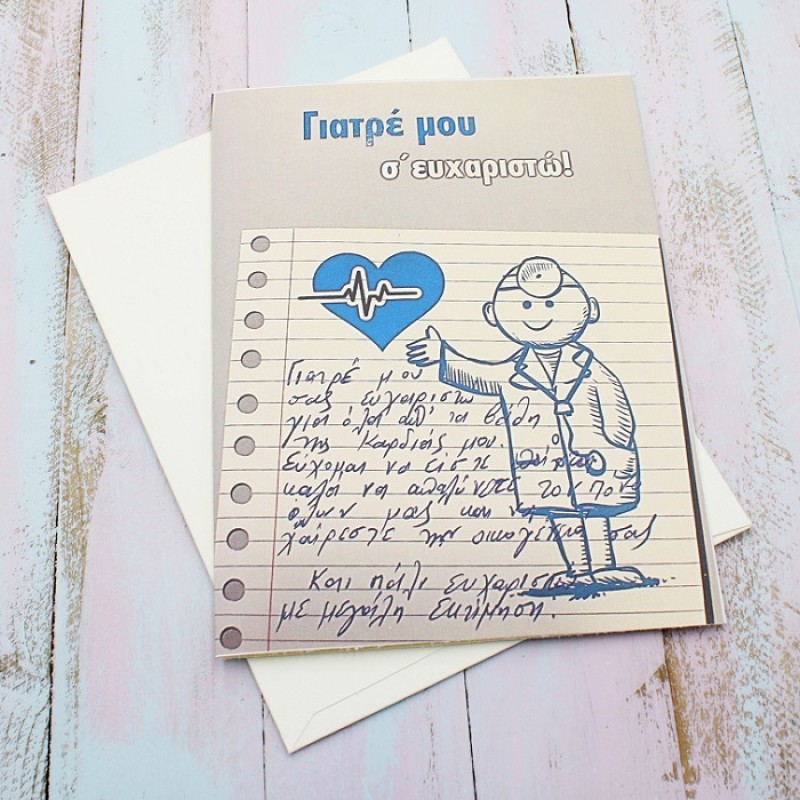 Γιατρέ μου
σ΄ευχαριστώ!
Γιατρέ μου
σας ευχαριστώ
για όλα απ' τα βάθη
της καρδιάς μου.
Εύχομαι να είστε πάντα
καλά να απαλύνετε τον πόνο
όλων μας και να
χαίρεστε την οικογένεια σας
Και πάλι ευχαριστώ
με μεγάλη εκτίμηση.